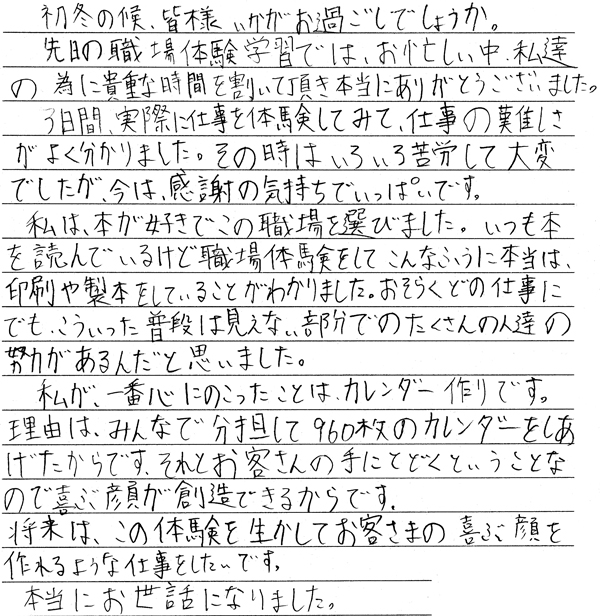 初冬の候、皆様いかがお過ごしでしょうか。
先日の職場体験学習では、お忙しい中、私達
の為に貴重な時間を割いて頂き本当にありがとうございました。
3日間、実際に仕事を体験してみて、仕事の難しさ
がよく分かりました。その時はいろいろ苦労して大変
でしたが、今は、感謝の気持ちでいっぱいです。
私は、本が好きでこの職場を選びました。いつも本
を読んでいるけど職場体験をしてこんなふうに本当は、
印刷や製本をしていることがわかりました。おそらくどの仕事に
でも、こういった普段は見えない部分でのたくさんの人達の
努力があるんだと思いました。
私が、一番心にのこったことは、カレンダー作りです。
理由は、みんなで分担して960枚のカレンダーをしあ
げたからです。それとお客さんの手にとどくということな
ので喜ぶ顔が創造できるからです。
将来は、この体験を生かしてお客さまの喜ぶ顔を
作れるような仕事をしたいです。
本当にお世話になりました。